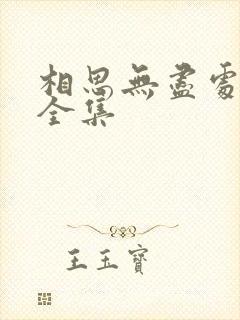 相思無盡處
全集
王玉寶